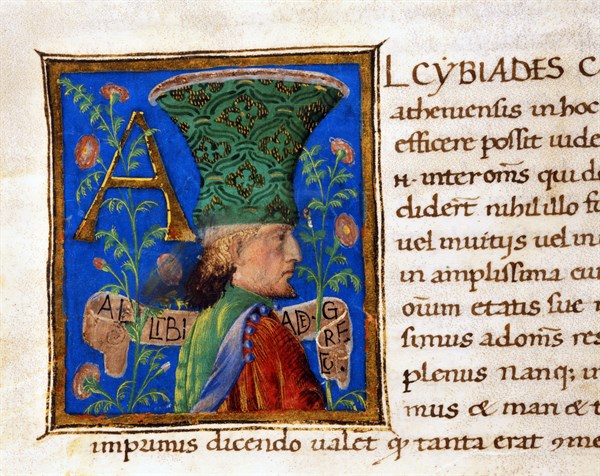 A
AL LIBI ADE GRE
LCYBIADES C
atheniensis in hoc
efficere possit uide
inter om̅s qui de
dider̅t nihil illo f
uel in uitijs uel in u
in amplissima cui
oi̅um etatis sue
simus ad om̅s res
plenus Nanq; in
mus & man & t
imprimis dicendo ualet ꝙ tanta erat